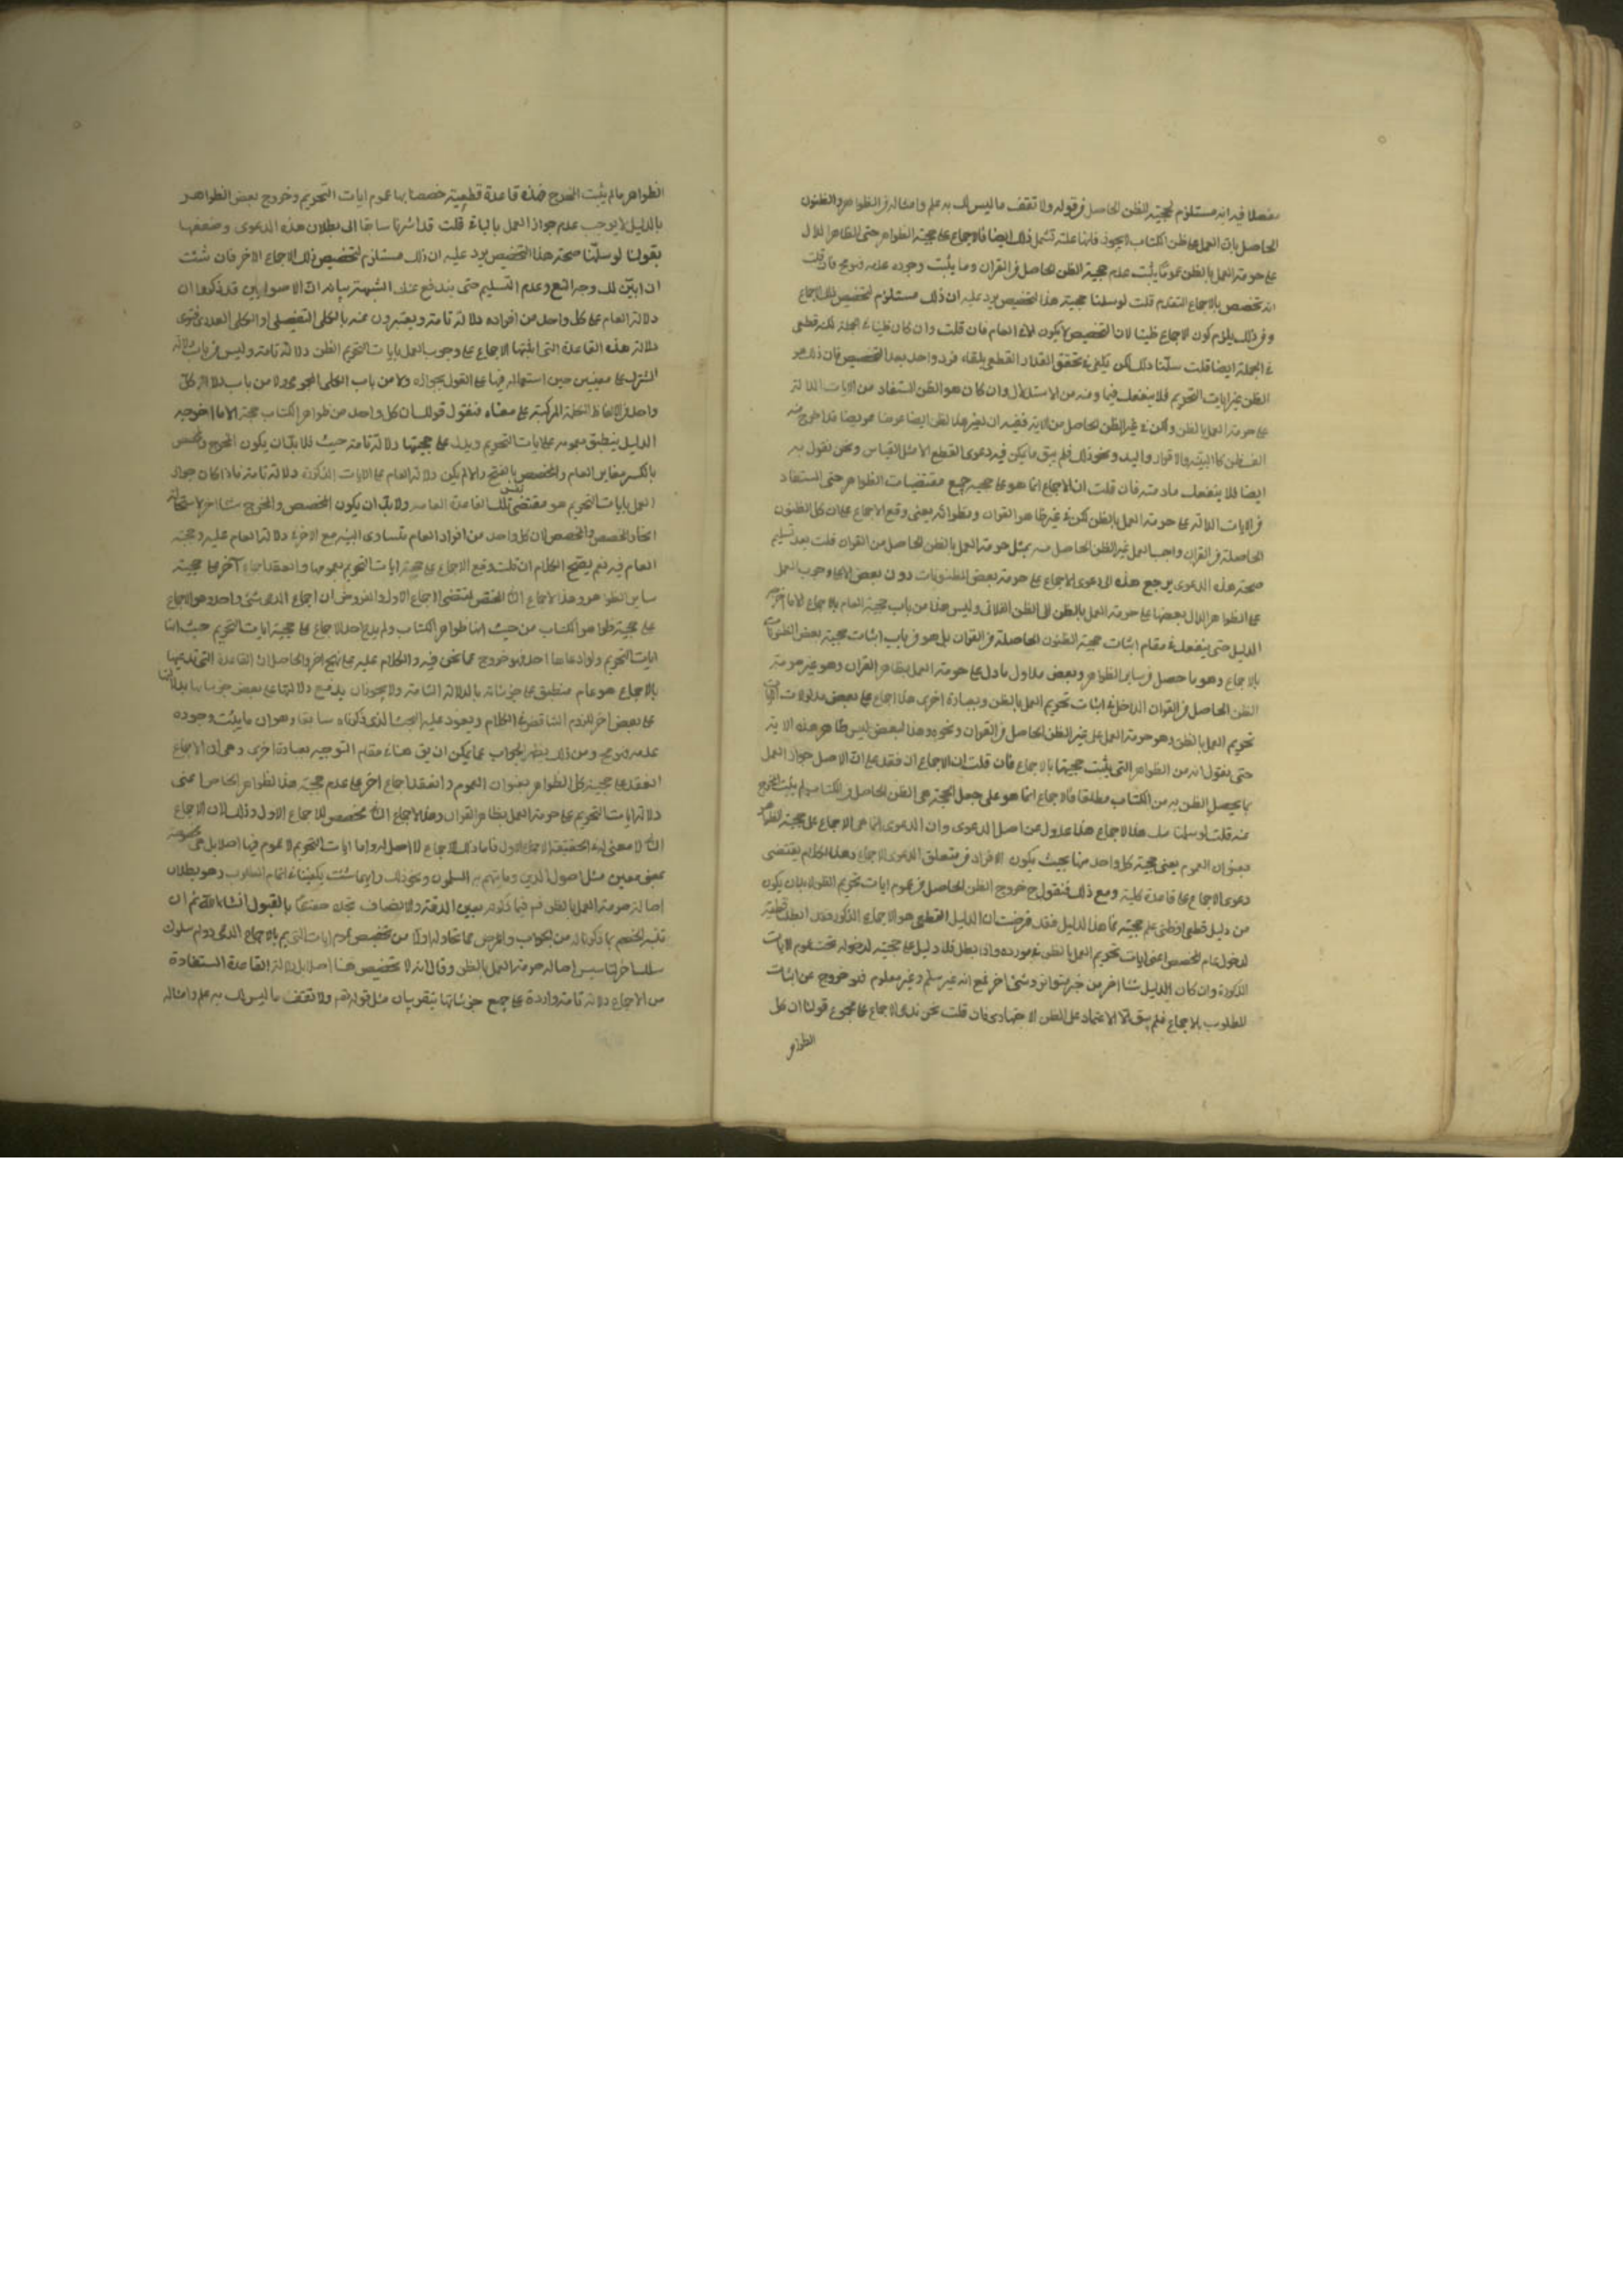 مفصلا فيه انه مستلزم لحجية الظن الحاصل من قوله ولا تقف ما ليس لك به علم وامثاله من الظواهر والظنون
الحاصل بان العمل على ظن الكتاب لا يجوز فانها علته تشمل ذلك ايضا فالاجماع على حجية الظواهر حتى الظاهر الدال
على حرمة العمل بالظن عموما يثبت عدم حجية الظن الحاصل من القران وما يثبت وجوده عدمه فهو مح فان قلت
انه تخصص بالاجماع المتقدم قلت لو سلمنا حجية هذا التخصيص يرد عليه ان ذلك مستلزم لتخصيص ذلك الاجماع
وفي ذلك يلزم كون الاجماع ظنيا لان التخصيص لا يكون الا في العام فان قلت وان كان ظنيا في الجملة لكنه قطعي
في الجملة ايضا قلت سلمنا ذلك لكن يكفي في تحقق القدر القطعي بقاء فرد واحد بعد التخصيص فان ذلك هو
الظن بغير ايات التحريم فلا ينفعك فيما ومنه من الاستدلال وان كان هو الظن المستفاد من الايات الدالة
على حرمة العمل بالظن ولكن في غير الظن الحاصل من الاية ففيه ان بغير هذا لظن ايضا قد خرج منه
الف ظن كالبينة والاقرار واليد ونحو ذلك فلم يبق ما يمكن فيه دعوى القطع الا مثل القياس ونحن نقول به
ايضا فلا ينفعك ما دمته فان قلت ان الاجماع انما هو على حجية جميع مقتضيات الظواهر حتى المستفاد
من الايات الدالة على حرمة العمل بالظن لكن في غير ظاهر القران ونظرائه يعني وقع الاجماع على ان كل الظنون
الحاصلة من القران واجب العمل غير الظن الحاصل منه بمثل حرمة العمل بالظن الحاصل من القران قلت بعد تسليم
صحة هذه الدعوى يرجع هذه الى دعوى الاجماع على حرمة بعض المظنونات دون بعض لا على وجوب العمل
على الظواهر الدال بعضها على حرمة العمل بالظن الى الظن الفلاني وليس هذا من باب حجية العام بالاجماع الا ما اخرجه
الدليل حتى ينفعك في مقام اثبات حجية الظنون الحاصلة من القران بل هو من باب اثبات حجية بعض الظنونات
بالاجماع وهو ما حصل من ساير الظواهر وبعض مدلول ما دل على حرمة العمل بظاهر القران وهو غير حرمة
الظن الحاصل من القران الداخل في اثبات تحريم العمل بالظن وبعبارة اخرى هذا اجماع على بعض مدلولات ايات
تحريم العمل بالظن وهو حرمة العمل على غير الظن الحاصل من القران ونحوه وهذا البعض ليس ظاهر هذه الاية
حتى نقول انه من الظواهر التي يثبت حجيتها بالاجماع فان قلت ان الاجماع انعقد على ان الاصل جواز العمل
بما يحصل الظن به من الكتاب مطلقا فالاجماع انما هو على جعل الحجة هي الظن الحاصل من الكتاب ما لم يثبت المخرج
عنه قلت لو سلمنا مثل هذا الاجماع هذا عدول عن اصل الدعوى وان الدعوى انما هي الاجماع على حجية الظواهر
بعنوان العموم يعني حجية كل واحد منها بحيث يكون الافراد متعلق الدعوى الاجماع وهذا الكلام يقتضي
دعوى الاجماع على قاعدة كلية ومع ذلك فنقول ح خروج الظن الحاصل من عموم ايات تحريم الظن لا بد ان يكون
من دليل قطعي او ظني علم حجيته فما هذا الدليل فقد فرضت ان الدليل القطعي هو الاجماع المذكور فقد ابطلت قطعيته
لدخول عام المخصص اعني ايات تحريم العمل بالظن في مورده واذا بطل فلا دليل على حجيته لدخوله تحت عموم الايات
المذكورة وان كان الدليل شيئا اخر من خبر متواتر او شئ اخر فمع انه غير مسلم وغير معلوم فهو خروج عن اثبات
المطلوب بالاجماع فلم يبق الا الاعتماد على الظن الاجتهادي فان قلت نحن ندعى الاجماع على مجموع قولنا ان كل
الظواهر
الظواهر ما لم يثبت المخرج فهذه قاعدة قطعية خصصنا بها عموم ايات التحريم وخروج بعض الظواهر
بالدليل لا يوجب عدم جواز العمل بالباقي قلت قد اشرنا سابقا الى بطلان هذه الدعوى وضعفها
بقولنا لو سلمنا صحة هذا التخصيص يرد عليه ان ذلك مستلزم لتخصيص ذلك الاجماع الاخر فان شئت
ان ابين لك وجه المنع وعدم التسليم حتى يندفع عنك الشبهة بيانه ان الاصوليين قد ذكروا ان
دلالة العام على كل واحد من افراده دلالة تامة ويعتبرون عنه بالكلي التفصيلي او الكلي العددي فنرى
دلالة هذه القاعدة التي اثبتها الاجماع على وجوب العمل بايات التحريم الظن دلالة تامة وليس من باب دلالة
المشترك على معنيين حين استعماله فيها على القول بجوازه ولا من باب الكلي المجموعي ولا من باب دلالة كل
واحد من الالفاظ المركبة على معناه فنقول قولك ان كل واحد من ظواهر الكتاب حجة الا ما اخرجه
الدليل ينطبق عمومه على ايات التحريم ويدل على حجيتها دلالة تامة حيث فلا بد ان يكون المخرج والمخصص
بالكسر مغاير العام والمخصص بالفتح ولا لم يكن دلالة العام على الايات المذكورة دلالة تامة فاذا كان جواز
العمل بايات التحريم هو مقتضى نفس تلك القاعدة العامة ولا بد ان يكون المخصص والمخرج شيئا اخر لاستحالة
اتحاد المخصص والمخصص لان كل واحد من افراد العام متساوي النسبة مع الاخر في دلالة العام عليه وحجية
العام فيه نعم يصح الكلام ان قلت وقع الاجماع على حجية ايات التحريم بعمومها وانعقد اجماع آخر على حجية
ساير الظواهر وهذا الاجماع الثاني مخصص لمقتضى الاجماع الاول والمفروض ان اجماع المدعى شئ واحد وهو الاجماع
على حجية ظواهر الكتاب من حيث انها ظواهر الكتاب ولم يدع احد الاجماع على حجية ايات التحريم حيث انها
ايات التحريم ولو ادعاها احد فهو خروج عما نحن فيه والكلام عليه على نهج اخر والحاصل ان القاعدة التي تدعيها
بالاجماع هو عام منطبق على جزئياته بالدلالة التامة ولا يجوز ان يدفع دلالتها على بعض جزئياتها بدلالتها
على بعض اخر للزوم التناقض في الكلام ويعود عليه البحث الذي ذكرناه سابقا وهو ان ما يثبت وجوده
عدمه فهو مح ومن ذلك يظهر الجواب عما يمكن ان يق هنا في مقام التوجيه بعبارة اخرى وهي ان الاجماع
انعقد على حجية كل الظواهر بعنوان العموم وانعقد اجماع اخر على عدم حجية هذا لظواهر الخاص اعني
دلالة ايات التحريم على حرمة العمل بظاهر القران وهذا الاجماع الثاني مخصص للاجماع الاول وذلك لان الاجماع
الثاني لا معنى له في الحقيقة الاجماع الاول فاما ذلك الاجماع لا اصل له واما ايات التحريم لا عموم فيها اصلا بل هي مخصوصة
بمعنى معين مثل اصول الدين وما يتهم به المسلمون ونحو ذلك وايهما شئت يكفينا في اتمام المطلوب وهو بطلان
اصالة حرمة العمل بالظن فم فيما ذكرته بعين الدقة والانصاف تجده حقيقا بالقبول انشاء الله ثم ان
تنبه الخصم بما ذكرناه من الجواب واعرض عما تحاوله اولا من تخصيص عموم ايات التحريم بالاجماع المدعى ورام سلوك
مسلك اخر لتاسيس اصالة حرمة العمل بالظن وقال انه لا تخصيص هنا اصلا بل دلالة القاعدة المستفادة
من الاجماع دلالة تامة واردة على جميع جزئياتها بتقريب ان مثل قوله تعم ولا تقف ما ليس لك به علم وامثاله